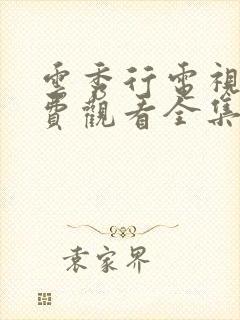 雲秀行電視
費觀看全集
袁家界